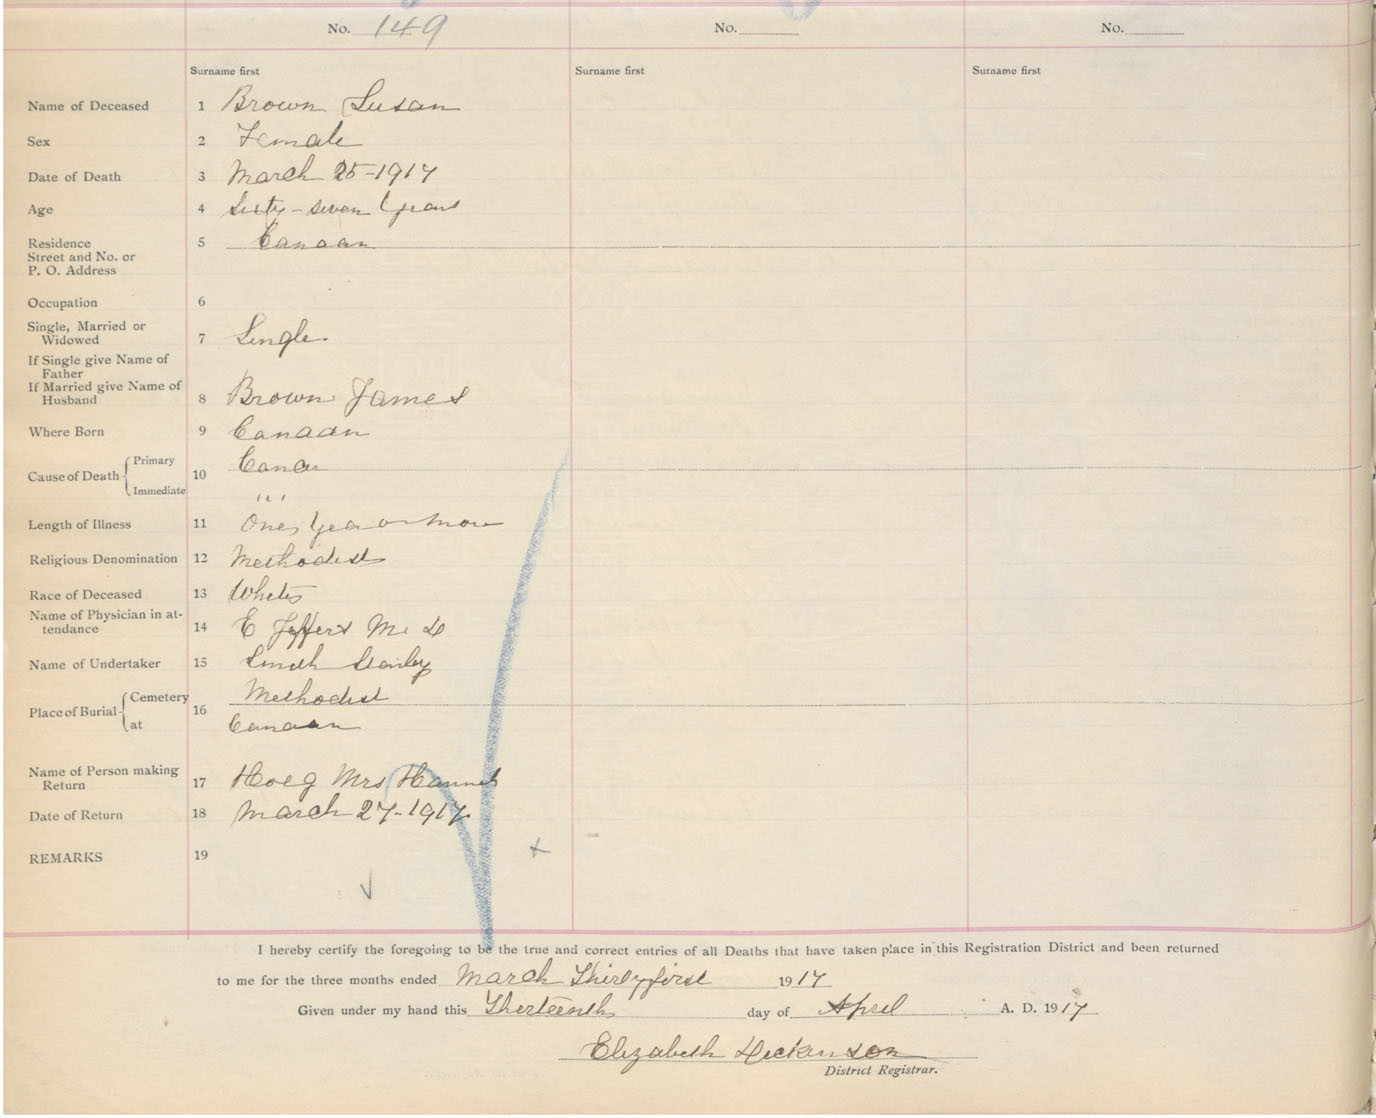 No. 149 No. No.
Surname first Surname first Surname first
Name of Deceased 1 Brown Susan
Sex 2 Female
Date of Death 3 March 25-1917
Age 4 Sixty-seven Years
Residence 5 Canaan
Street and No. or
P. O. Address
Occupation 6
Single, Married or
Widowed 7 Single.
If Single give Name of
Father
If Married give Name of
Husband 8 Brown James
Where Born 9 Canaan
Cause of Death Primary 10 Cancer
Immediate " "
Length of Illness 11 One Year or More
Religious Denomination 12 Methodist
Race of Deceased 13 White
Name of Physician in at-
tendance 14 E Jeffers M. D
Name of Undertaker 15 Smith Stanley
Place of Burial Cemetery 16 Methodist
at Canaan
Name of Person making
Return 17 Hoeg Mrs Hannah
Date of Return 18 March 27-1917
REMARKS 19
I hereby certify the foregoing to be the true and correct entries of all Deaths that have taken place in this Registration District and been returned
to me for the three months ended March Thirty first 1917
Given under my hand this Thirteenth day of April A. D. 1917
Elizabeth Dickinson
District Registrar.